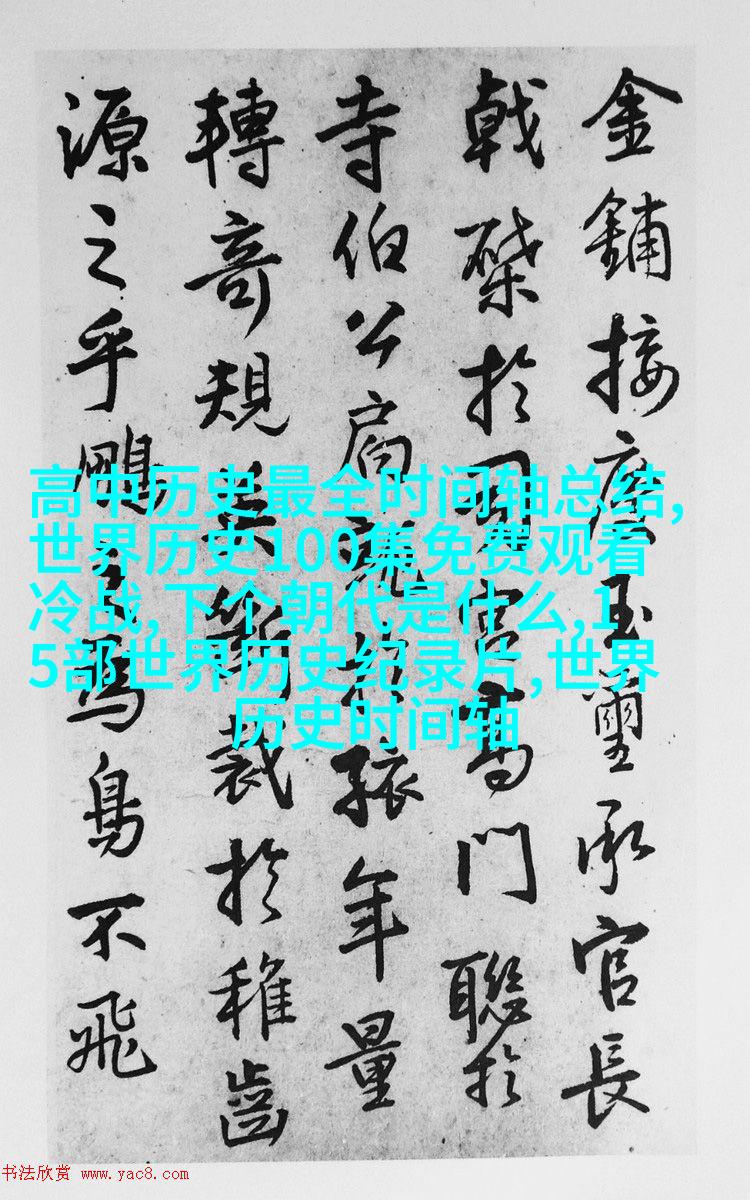 金鋪接慶玉璽承官長
戟棨於司宫高門聯於
寺伯公扃於孩年量
轉奇規裁於稚齒
源之乎鵬焉鳥不飛
高中历史最全时间轴总结,
世界历史100集免费观看
冷战,下个朝代是什么,1
5部世界历史纪录片,世界
历史时间轴
书法欣赏 www.yac8.com